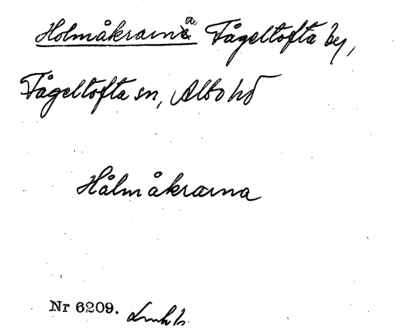 Holmåkrarna Fågeltofta by,
Fågeltofta sn, Albo hd
Hålmåkrarna
Nr 6209.